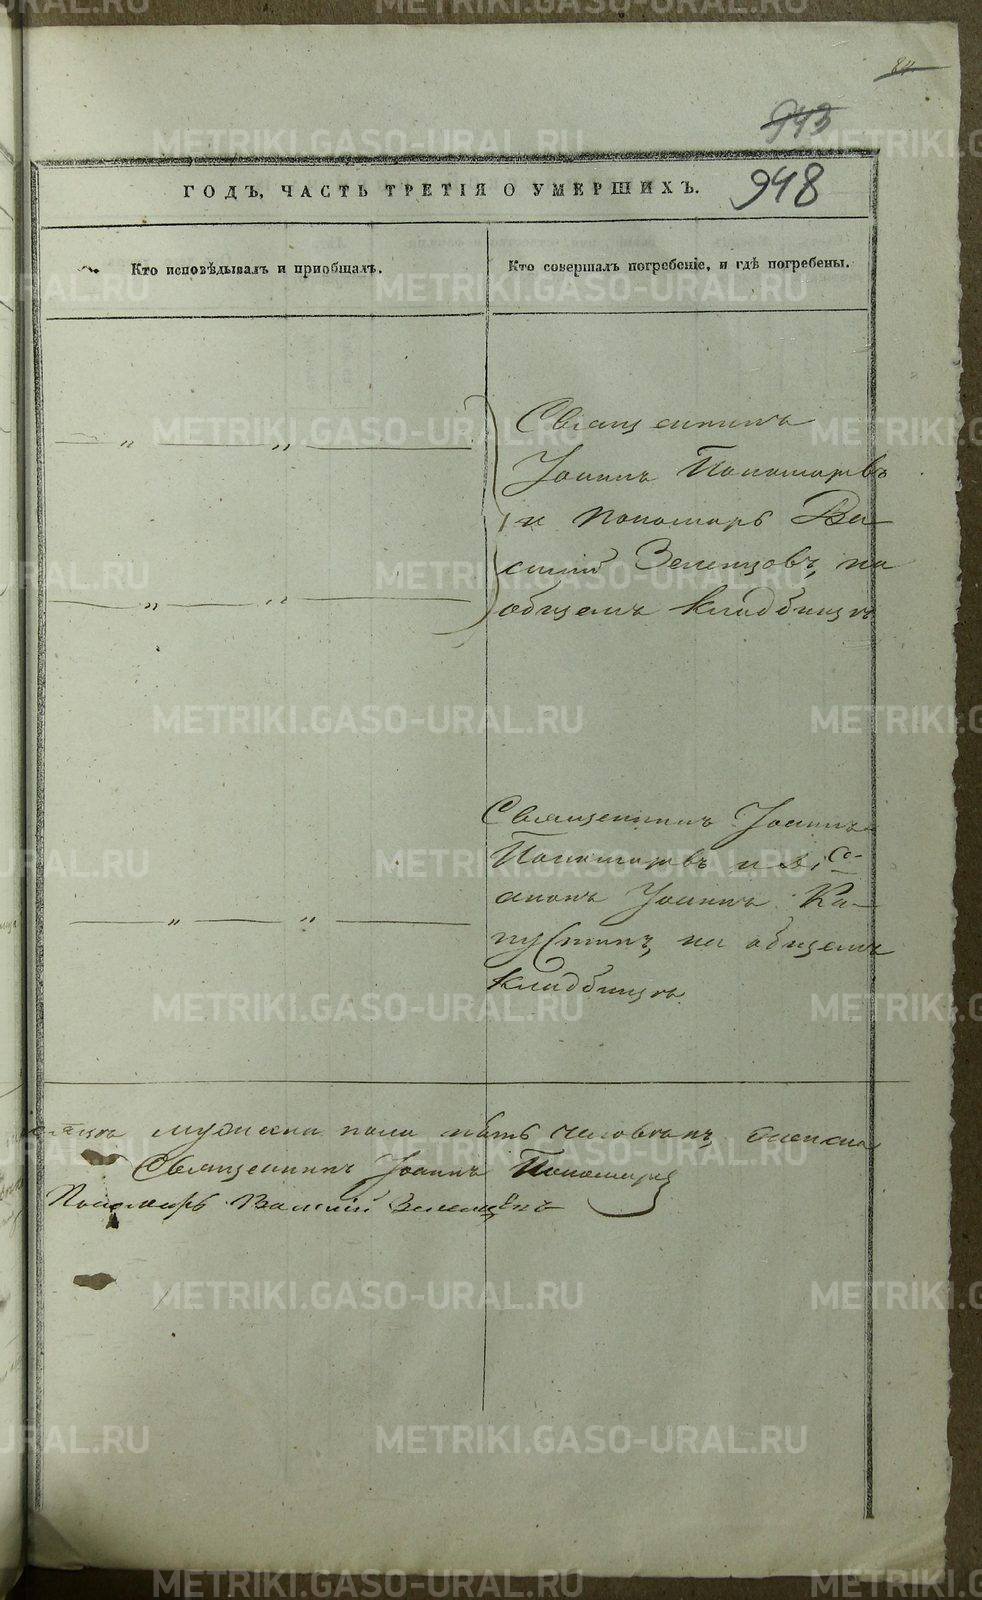 84
943
948
ГОДЪ, ЧАСТЬ ТРЕТІЯ О УМЕРШИХЪ.
Кто исповѣдывалъ и приобщалъ.
Кто совершалъ погребеніе, и гдѣ погребены.
Священникъ
Іоаннъ Пономаревъ
и пономарь Ва-
силій Зеленцовъ, на
общемъ кладбищѣ
Священникъ Іоаннъ
Пономаревъ и діа-
конъ Іоаннъ Ка-
пустинъ, на общемъ
кладбищѣ.
мужеска пола пять человѣкъ, женска
Священникъ Іоаннъ Пономаревъ
Пономарь Василій Зеленцовъ
METRIKI.GASO-URAL.RU